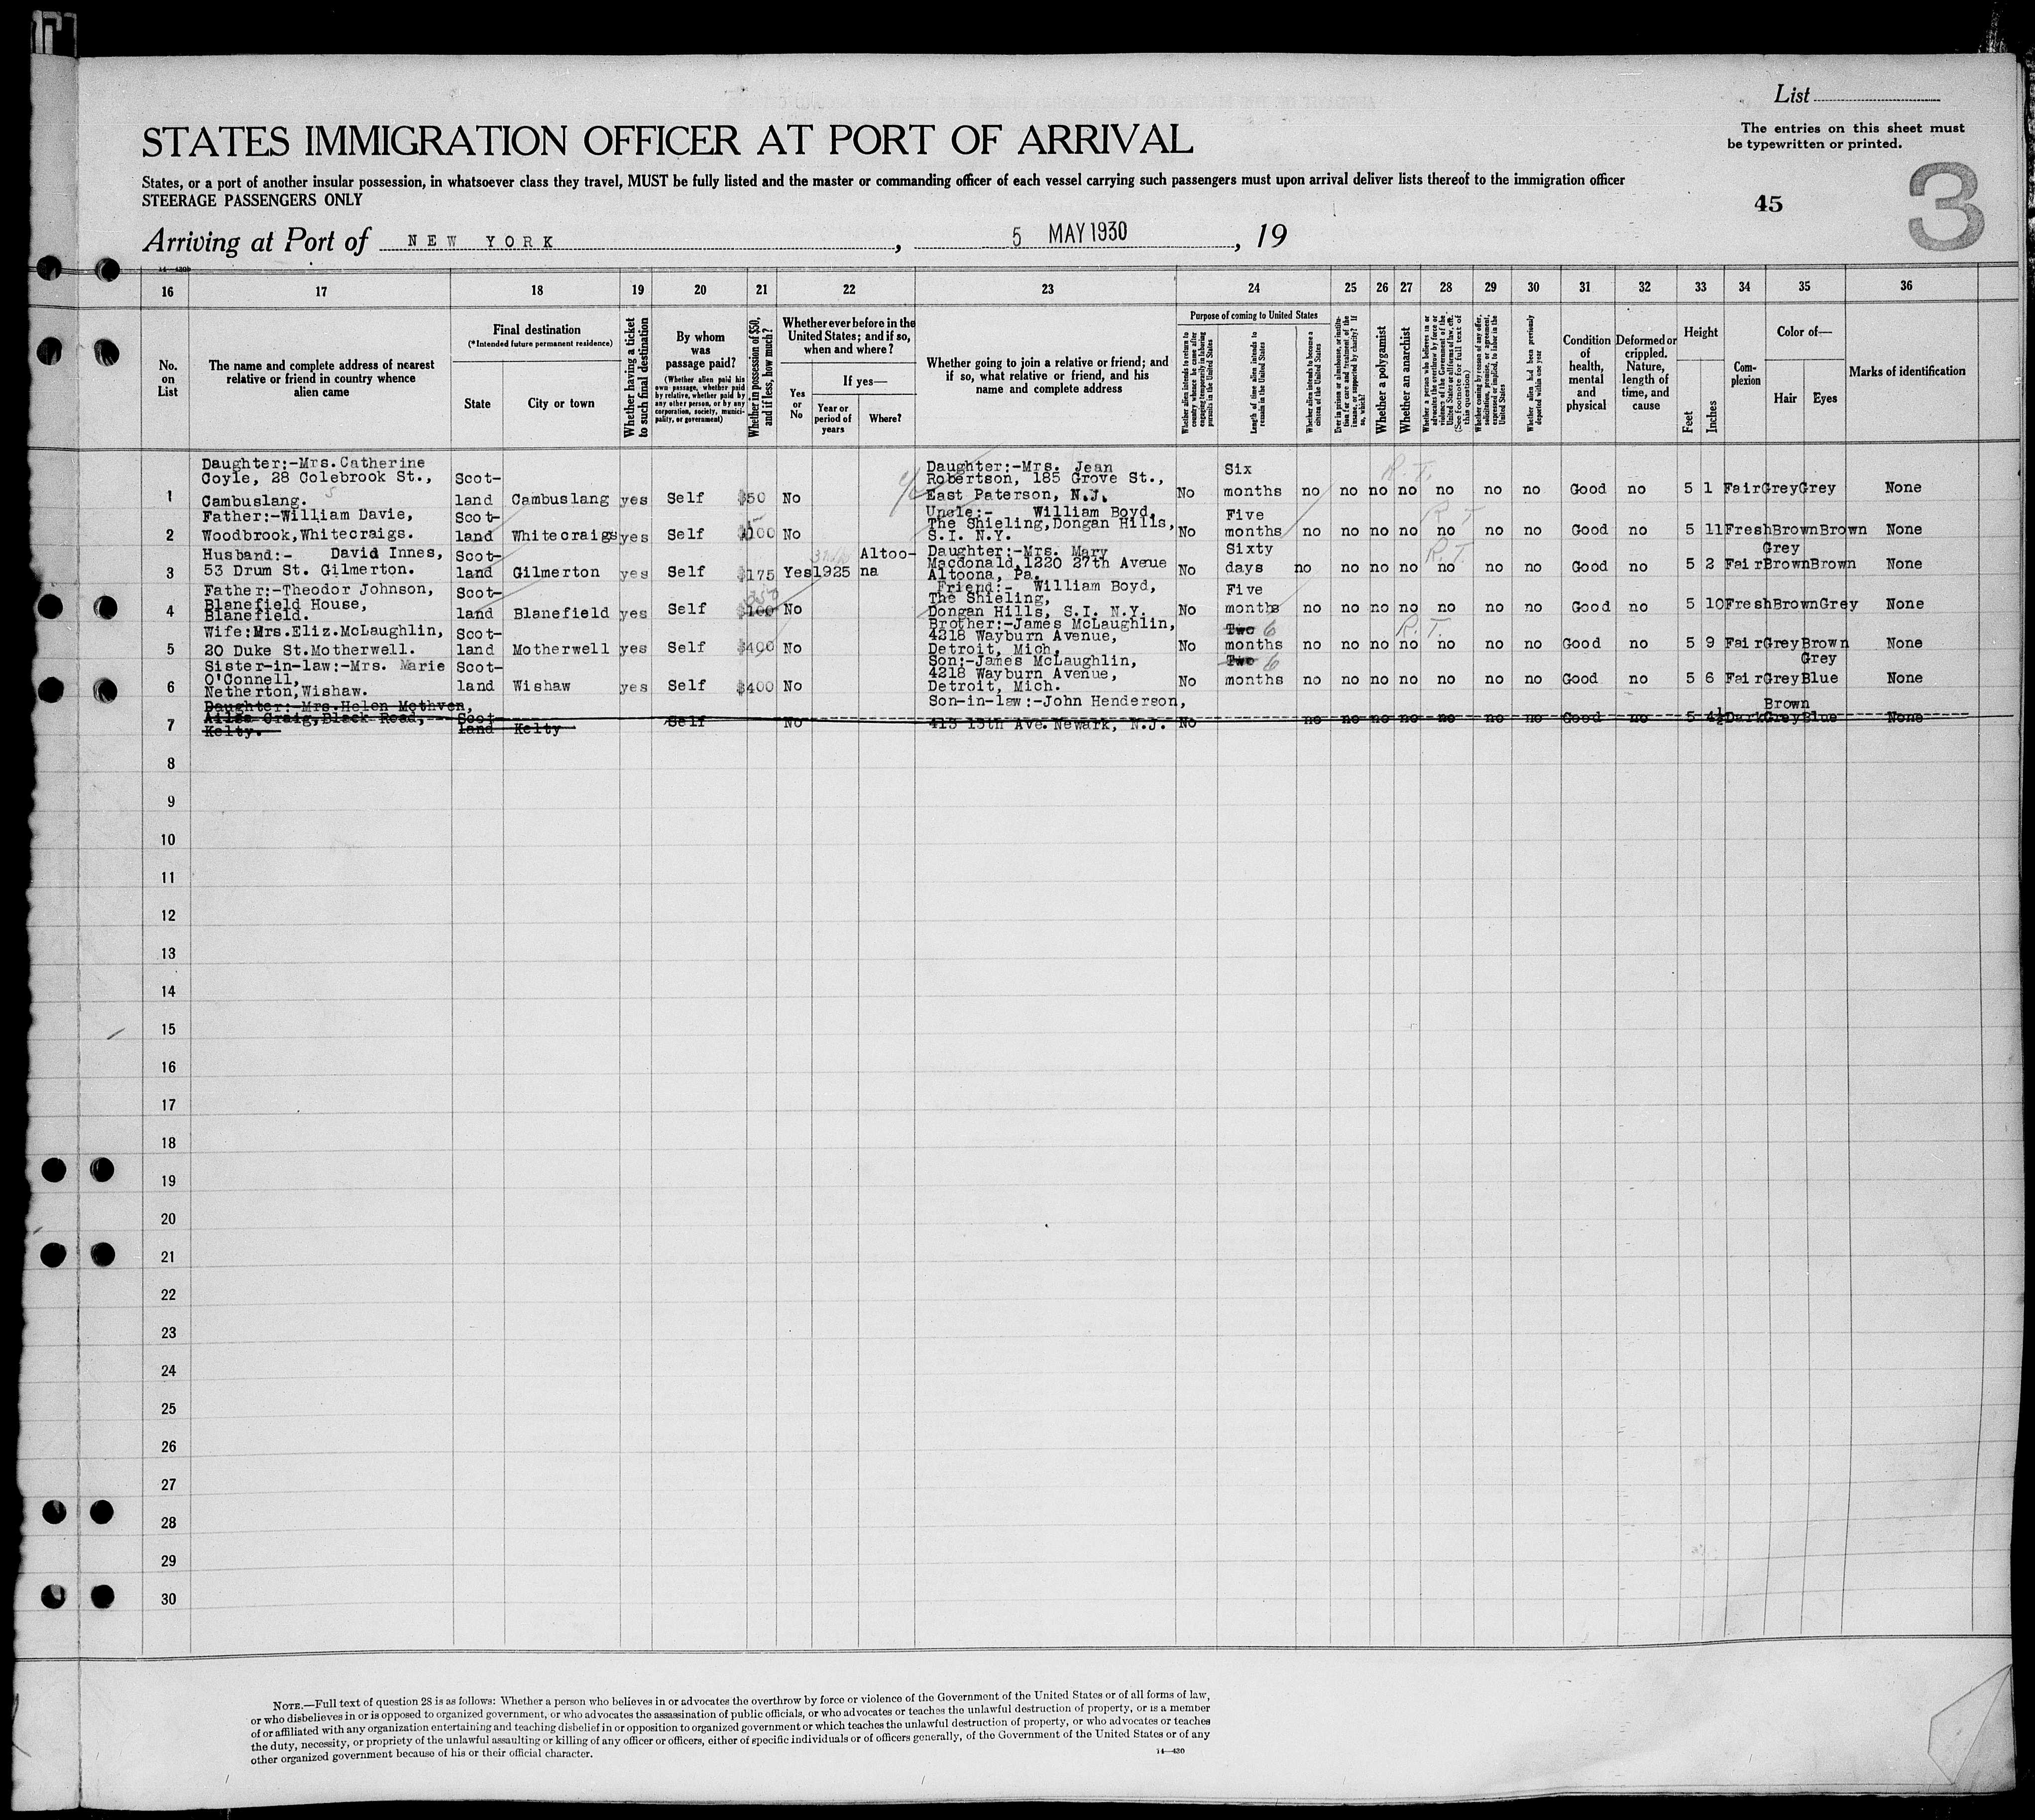 List
The entries on this sheet must
be typewritten or printed.
STATES IMMIGRATION OFFICER AT PORT OF ARRIVAL
States, or a port of another insular possession, in whatsoever class they travel, MUST be fully listed and the master or commanding officer of each vessel carrying such passengers must upon arrival deliver lists thereof to the immigration officer
STEERAGE PASSENGERS ONLY
45
3
Arriving at Port of NEW YORK, 5 MAY 1930, 19
14—430b
16 17 18 19 20 21 22 23 24 25 26 27 28 29 30 31 32 33 34 35 36
No.
on
List
The name and complete address of nearest
relative or friend in country whence
alien came
Final destination
(*Intended future permanent residence)
State
City or town
Whether having a ticket
to such final destination
By whom
was
passage paid?
(Whether alien paid his
own passage, whether paid
by relative, whether paid by
any other person, or by any
corporation, society, munici-
pality, or government)
Whether in possession of $50,
and if less, how much?
Whether ever before in the
United States; and if so,
when and where?
Yes
or
No
If yes—
Year or
period of
years
Where?
Whether going to join a relative or friend; and
if so, what relative or friend, and his
name and complete address
Purpose of coming to United States
Whether alien intends to return to
country whence he came after
engaging temporarily in laboring
pursuits in the United States
Length of time alien intends to
remain in the United States
Whether alien intends to become a
citizen of the United States
Ever in prison or almshouse, or institu-
tion for care and treatment of the
insane, or supported by charity? If
so, which?
Whether a polygamist
Whether an anarchist
Whether a person who believes in or
advocates the overthrow by force or
violence of the Government of the
United States or all forms of law, etc.
(See footnote for full text of
this question)
Whether coming by reason of any offer,
solicitation, promise, or agreement,
expressed or implied, to labor in the
United States
Whether alien had been previously
deported within one year
Condition
of
health,
mental
and
physical
Deformed or
crippled.
Nature,
length of
time, and
cause
Height
Feet
Inches
Com-
plexion
Color of—
Hair
Eyes
Marks of identification
Daughter:-Mrs. Catherine Daughter:-Mrs. Jean R.T.
Coyle, 28 Colebrook St., Scot- Robertson, 185 Grove St., Six
1 Cambuslang. land Cambuslang yes Self $50 No East Paterson, N.J. No months no no no no no no no Good no 5 1 Fair Grey Grey None
Father:-William Davie, Scot- Uncle:- William Boyd, Five R T
2 Woodbrook, Whitecraigs. land Whitecraigs yes Self $100 No The Shieling, Dongan Hills, No months no no no no no no no Good no 5 11 Fresh Brown Brown None
S.I. N.Y.
Husband:- David Innes, Scot- Altoo- Daughter:-Mrs. Mary Sixty R.T. Grey
3 53 Drum St. Gilmerton. land Gilmerton yes Self $175 Yes 1925 na Macdonald, 1220 27th Aveue No days no no no no no no no Good no 5 2 Fair Brown Brown None
Altoona, Pa.
Father:-Theodor Johnson, Scot- Friend:- William Boyd, Five
Blanefield House, The Shieling,
4 Blanefield. land Blanefield yes Self $100 No Dongan Hills, S.I. N.Y. No months no no no no no no no Good no 5 10 Fresh Brown Grey None
Wife:Mrs.Eliz.McLaughlin, Scot- Brother:-James McLaughlin, Two 6 R.T.
4218 Wayburn Avenue,
5 20 Duke St.Motherwell. land Motherwell yes Self $400 No Detroit, Mich. No months no no no no no no no Good no 5 9 Fair Grey Brown None
Sister-in-law:-Mrs. Marie Scot- Son:-James McLaughlin, Two 6 Grey
O'Connell, 4218 Wayburn Avenue,
6 Netherton, Wishaw. land Wishaw yes Self $400 No Detroit, Mich. No months no no no no no no no Good no 5 6 Fair Grey Blue None
Daughter:-Mrs.Helen Methven, Son-in-law:-John Henderson, Brown
7 Ailsa Craig, Black Road, Scot- Self No 415 15th Ave. Newark, N.J. No no no no no no no no Good no 5 4½ Dark Grey Blue None
Kelty. land Kelty
8
9
10
11
12
13
14
15
16
17
18
19
20
21
22
23
24
25
26
27
28
29
30
NOTE.—Full text of question 28 is as follows: Whether a person who believes in or advocates the overthrow by force or violence of the Government of the United States or of all forms of law,
or who disbelieves in or is opposed to organized government, or who advocates the assassination of public officials, or who advocates or teaches the unlawful destruction of property, or is a member
of or affiliated with any organization entertaining and teaching disbelief in or opposition to organized government or which teaches the unlawful destruction of property, or who advocates or teaches
the duty, necessity, or propriety of the unlawful assaulting or killing of any officer or officers, either of specific individuals or of officers generally, of the Government of the United States or of any
other organized government because of his or their official character.
14—430